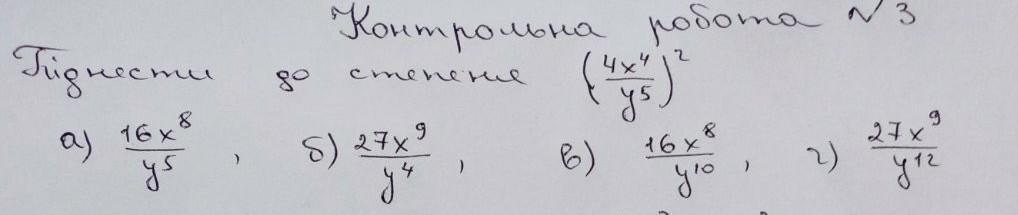 Контрольна робота №3
Піднести до степеня (4x⁴/y⁵)²
а) 16x⁸/y⁵ , б) 27x⁹/y⁴ , в) 16x⁸/y¹⁰ , г) 27x⁹/y¹²